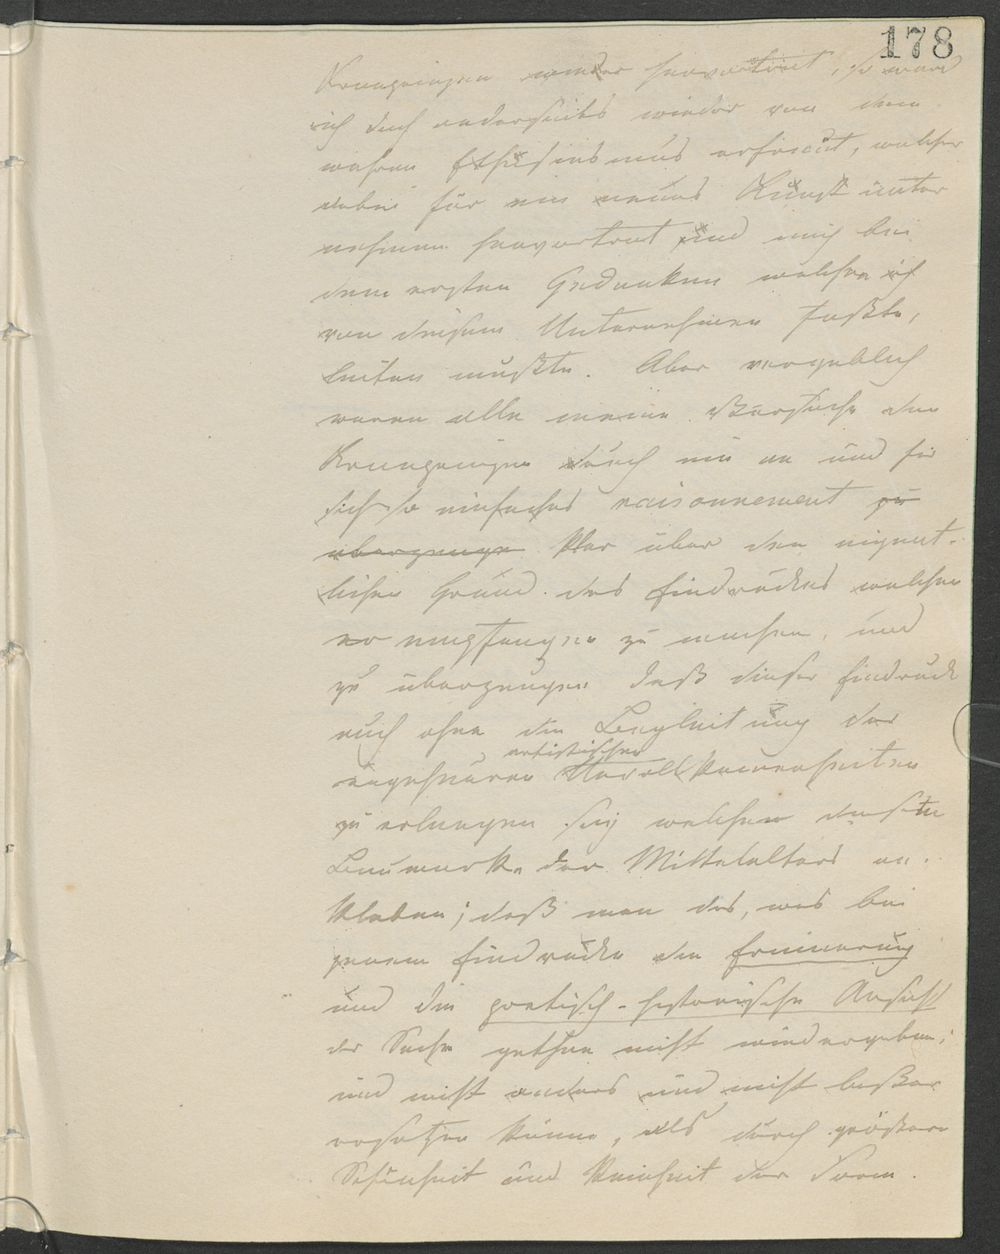 178
Kronprinzen wieder hervortrat, so ward
ich doch anderseits wieder von dem
wahren Enthusiasmus erfreut, welcher
dabei für ein neues Kunst unter
nehmen hervortrat und mich bei
dem ersten Gedanken welchen ich
von diesem Unternehmen faßte,
leiten mußte. Aber vergeblich
waren alle meine Versuche den
Kronprinzen durch ein an und für
sich so einfaches raisonnement zu
überzeugen klar über den eigent-
lichen Grund des Eindruckes welchen
er empfangen zu machen, und
zu überzeugen daß dieser Eindruck
auch ohne die Begleitung der
artistischen
ungeheuren Unvollkommenheiten
zu erlangen sey welchen
Bauwerke des Mittelalters an-
kleben; daß man das, was bei
jenem Eindrucke die Erinnerung
und die poetisch-historische Ansicht
der Sache gethan nicht wiedergeben;
und nicht anders und nicht beßer
ersetzen könne, als durch größere
Schönheit und Reinheit der Form.